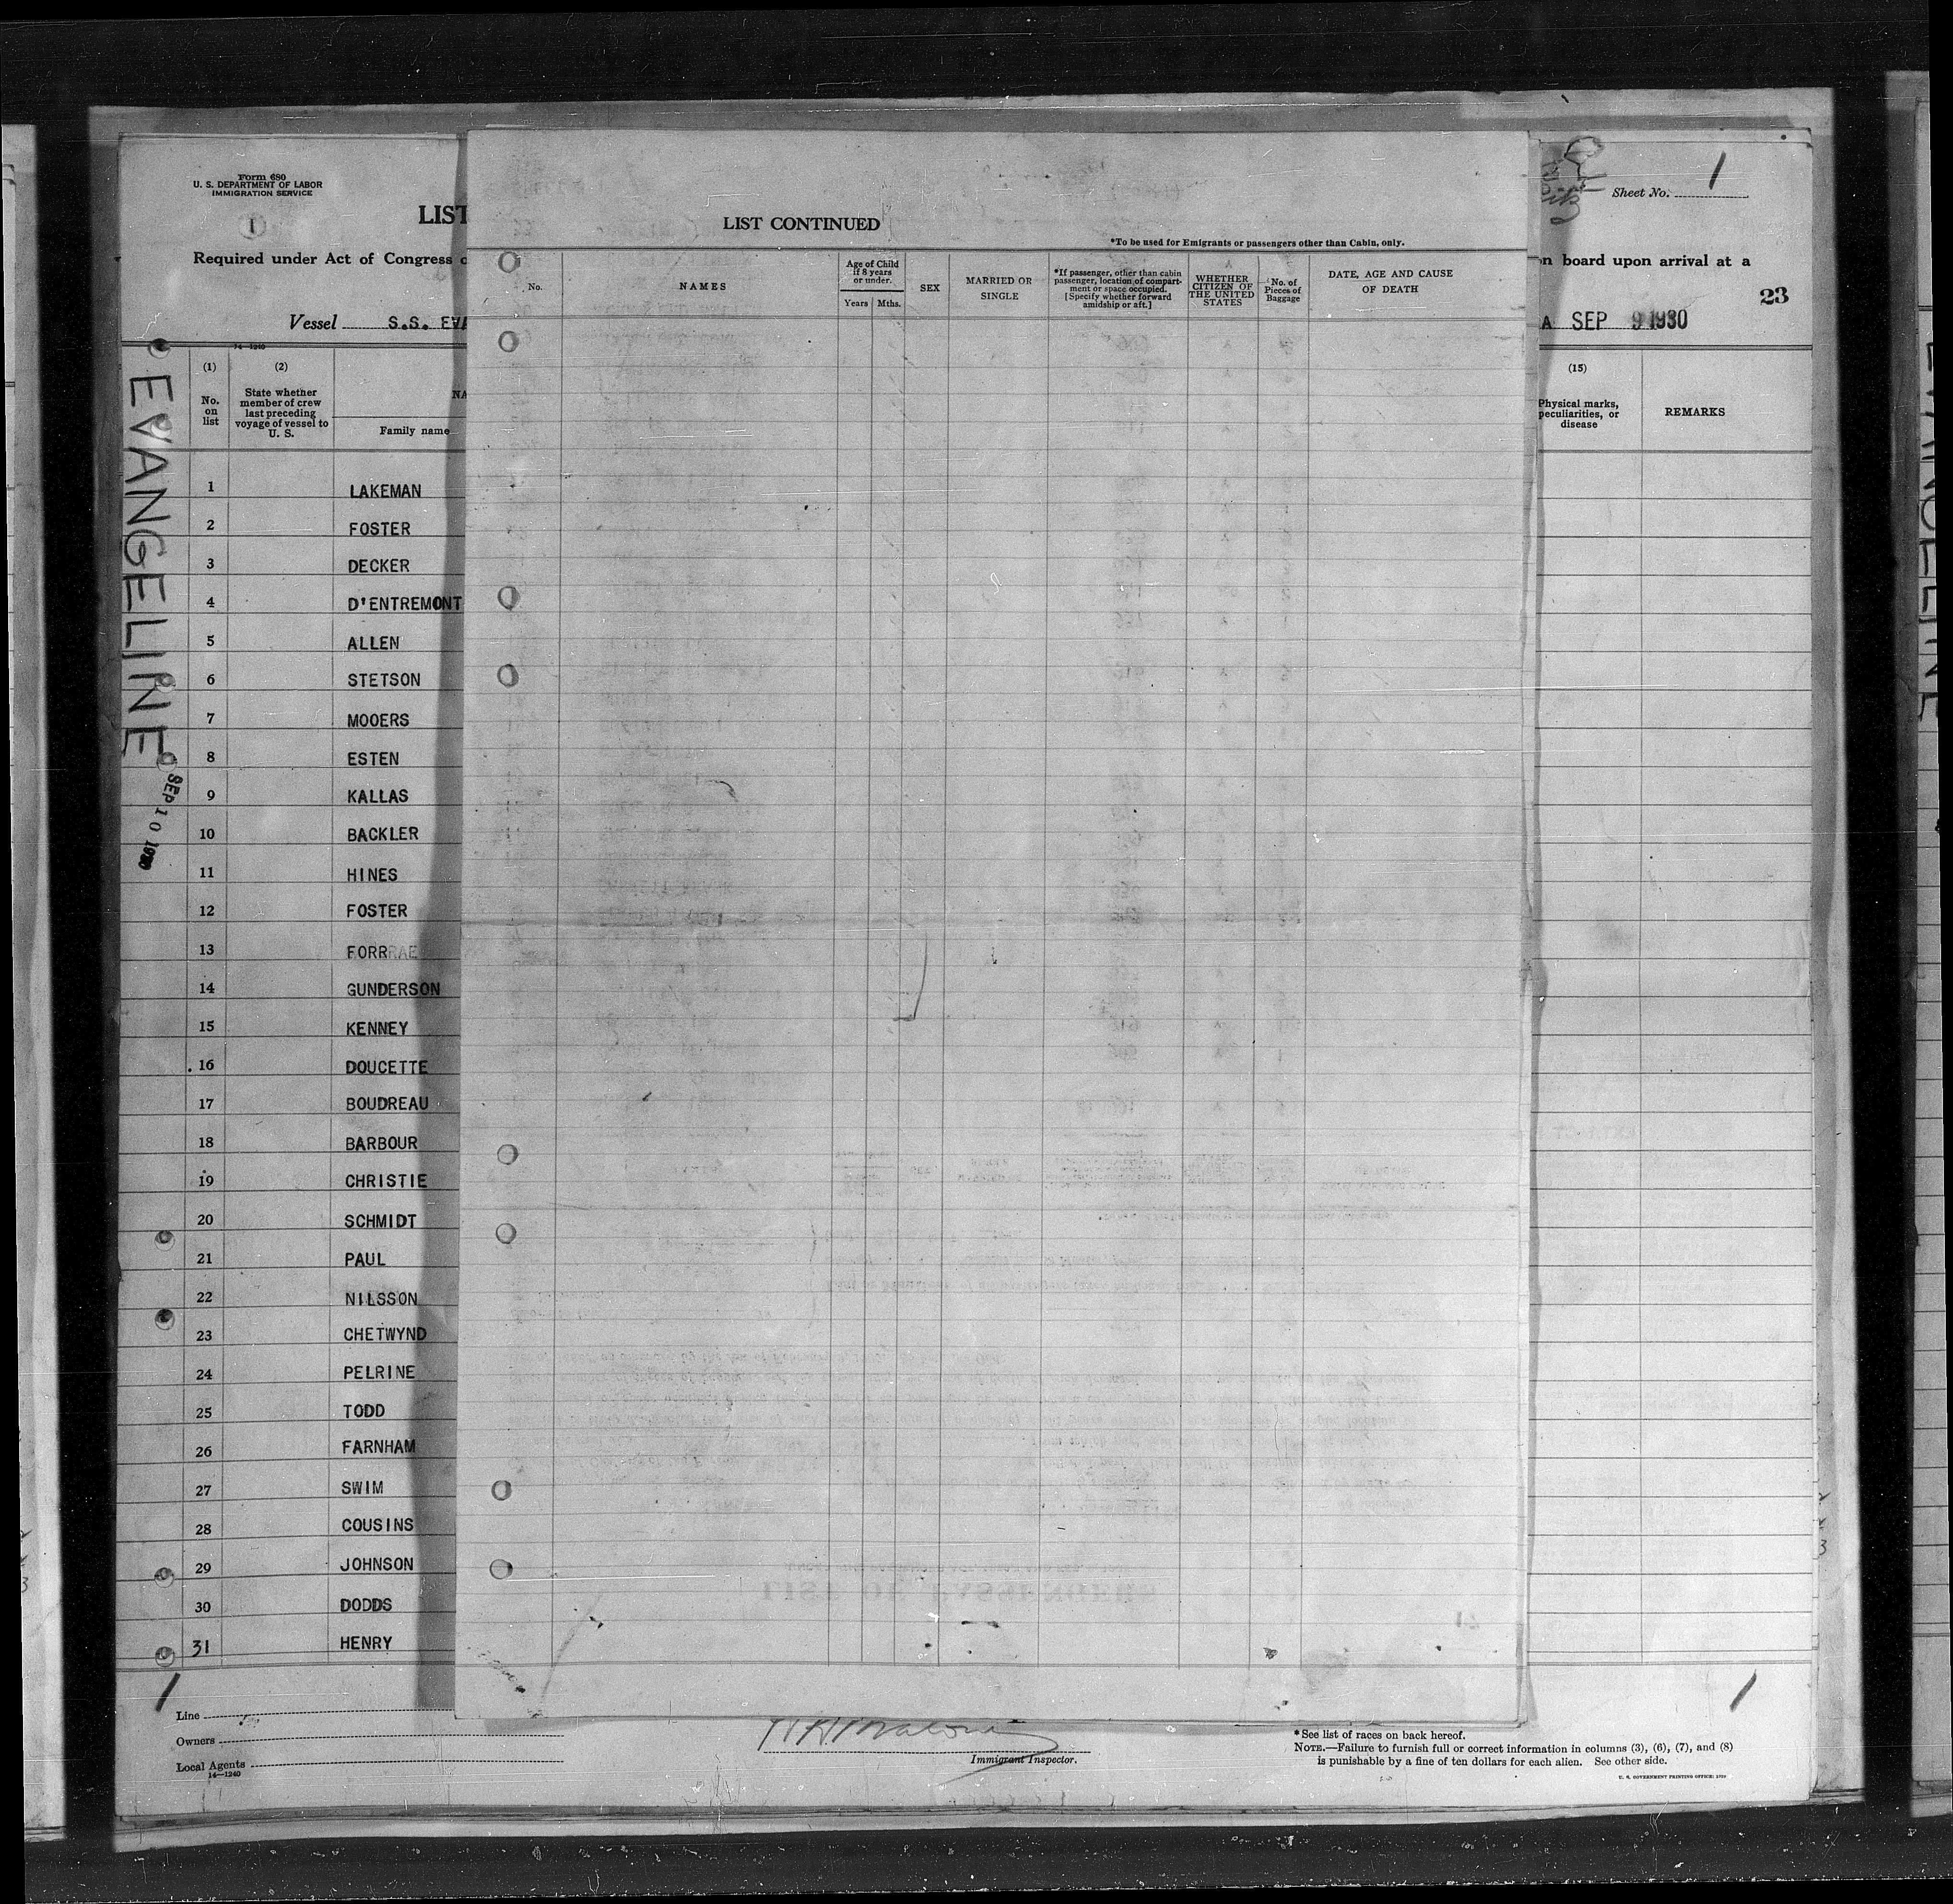 Form 680
U. S. DEPARTMENT OF LABOR
IMMIGRATION SERVICE
1
LIST
Required under Act of Congress
Vessel S.S. EVA
74-1240
(1)
No.
on
list
(2)
State whether
member of crew
last preceding
voyage of vessel to
U. S.
NA
Family name
1 LAKEMAN
2 FOSTER
3 DECKER
4 D'ENTREMONT
5 ALLEN
6 STETSON
7 MOOERS
8 ESTEN
9 KALLAS
10 BACKLER
11 HINES
12 FOSTER
13 FORRRAE
14 GUNDERSON
15 KENNEY
16 DOUCETTE
17 BOUDREAU
18 BARBOUR
19 CHRISTIE
20 SCHMIDT
21 PAUL
22 NILSSON
23 CHETWYND
24 PELRINE
25 TODD
26 FARNHAM
27 SWIM
28 COUSINS
29 JOHNSON
30 DODDS
31 HENRY
EVANGELINE
SEP 10 1930
1
Line
Owners
Local Agents
14-1240
LIST CONTINUED
*To be used for Emigrants or passengers other than Cabin, only.
No.
NAMES
Age of Child
if 8 years
or under.
Years Mths.
SEX
MARRIED OR
SINGLE
*If passenger, other than cabin
passenger, location of compart-
ment or space occupied.
[Specify whether forward
amidship or aft.]
WHETHER
CITIZEN OF
THE UNITED
STATES
No. of
Pieces of
Baggage
DATE, AGE AND CAUSE
OF DEATH
Sheet No. 1
on board upon arrival at a
23
A SEP 9 1930
(15)
Physical marks,
peculiarities, or
disease
REMARKS
1
Immigrant Inspector.
*See list of races on back hereof.
NOTE.—Failure to furnish full or correct information in columns (3), (6), (7), and (8)
is punishable by a fine of ten dollars for each alien. See other side.
U. S. GOVERNMENT PRINTING OFFICE: 1929
EVANGELINE